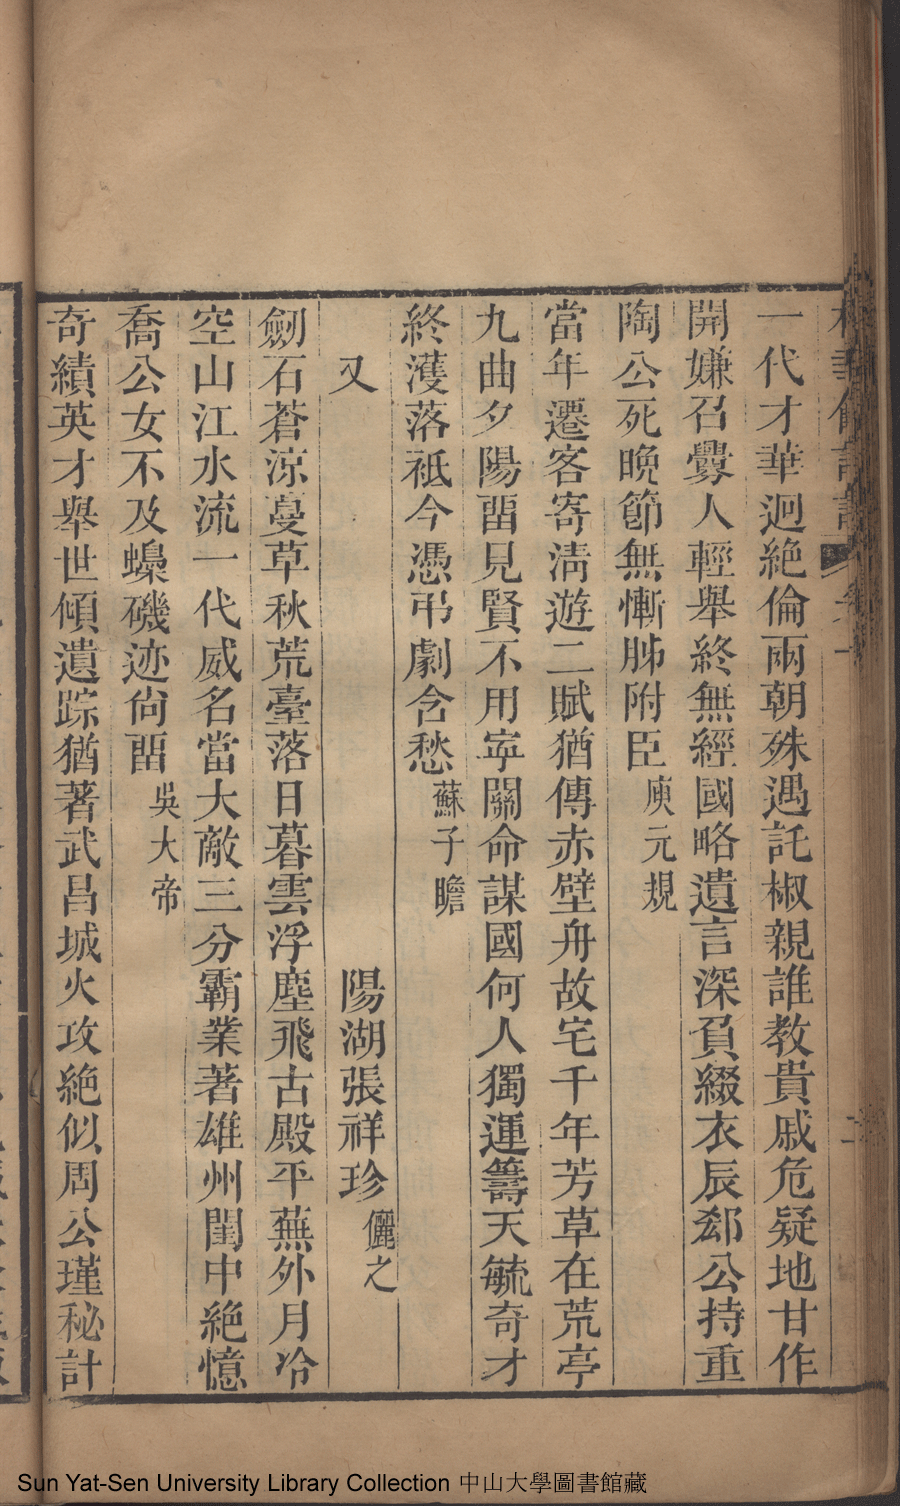 一代才華迥絶倫兩朝殊遇託椒親誰教貴戚危疑地甘作
開嫌召釁人輕舉終無經國略遺言深負綴衣辰郄公持重
陶公死晩節無慚肺附臣庾元規
當年遷客寄淸遊二賦猶傳赤壁舟故宅千年芳草在荒亭
九曲夕陽畱見賢不用寧關命謀國何人獨運籌天毓奇才
終濩落祗今憑弔劇含愁蘇子瞻
又 陽湖張祥珍儷之
劒石蒼涼蔓草秋荒臺落日暮雲浮塵飛古殿平蕪外月冷
空山江水流一代威名當大敵三分霸業著雄州閨中絶憶
喬公女不及蟂磯迹尙畱吳大帝
奇績英才舉世傾遺踪猶著武昌城火攻絶似周公瑾秘計
Sun Yat-Sen University Library Collection 中山大學圖書館藏